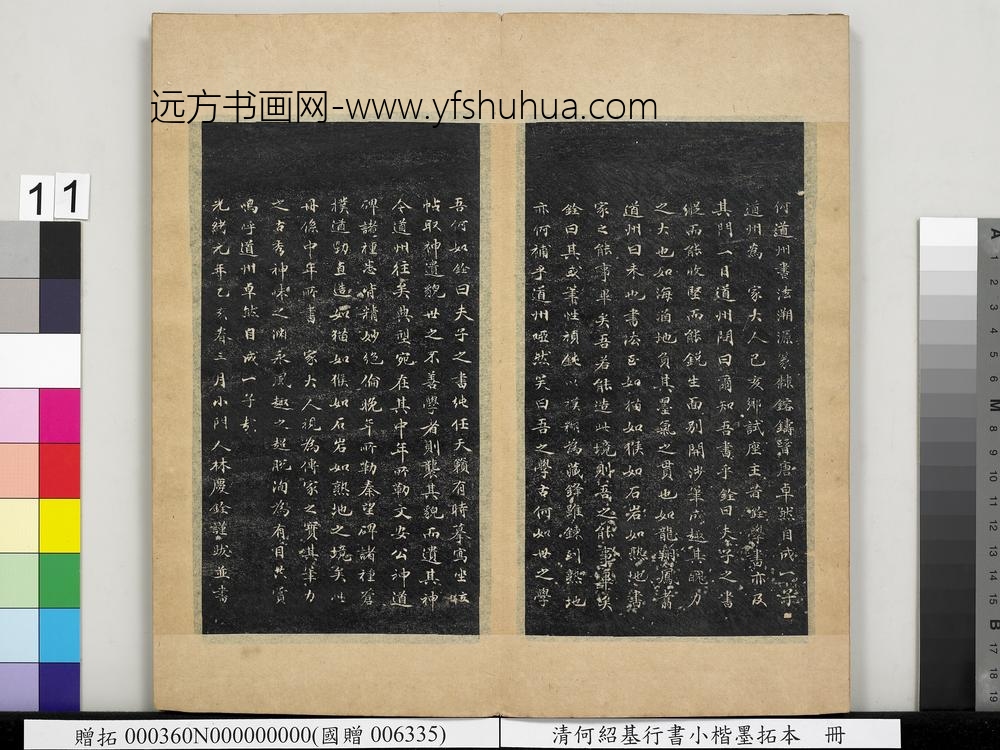 远方书画网-www.yfshuhua.com
11
何道州書法溯源篆隸鎔鑄晉唐卓然自成一子
道州為 家大人己亥鄉試座主昔銓學書亦及
其門一日道州問曰爾知吾書乎銓曰夫子之書
縱而能收堅而能銳生面別開涉筆成趣其腕力
之大也如海涵地負其墨氣之貫也如龍翔鳳翥
道州曰未也書法至如猫如猴如石岩如熟地書
家之能事畢矣吾若能造此境則吾之能事畢矣
銓曰其或薯性頑鈍以模糊為藏鋒雖鍊到熟地
亦何補乎道州啞然笑曰吾之學古何如世之學
吾何如銓曰夫子之書純任天籟有時摹寫坐
帖取神遺貌世之不善學者則襲其貌而遺其神
今道州往矣典型宛在其中年所勒文安公神道
碑諸種悉皆精妙絕倫晚年所勒秦望碑諸種蒼
樸遒勁直造如猫如猴如石岩如熟地之境矣
冊係中年所書 家大人視為傳家之寶其筆力
之古秀神味之淵永風趣之超脫洵為有目共賞
嗚呼道州卓然自成一子矣
光緒元年乙亥春三月小門人林慶銓謹跋並書
A 1 2 3 4 5 6 M 8 9 10 11 12 13 14 15 B 17 18 19
贈拓 000360N000000000(國贈 006335)
清何紹基行書小楷墨拓本 冊